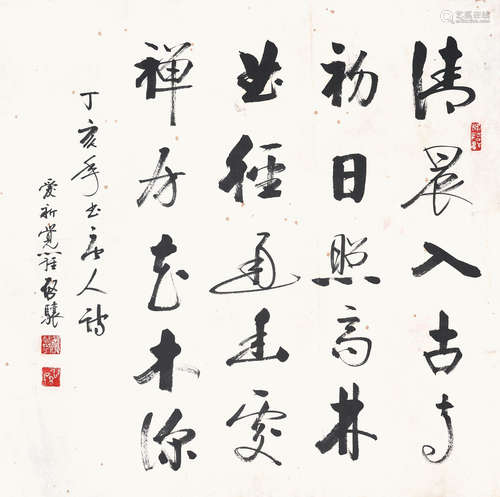 清晨入古寺
初日照高林
曲径通幽处
禅房花木深
丁亥年书唐人诗
爱新觉罗启骧